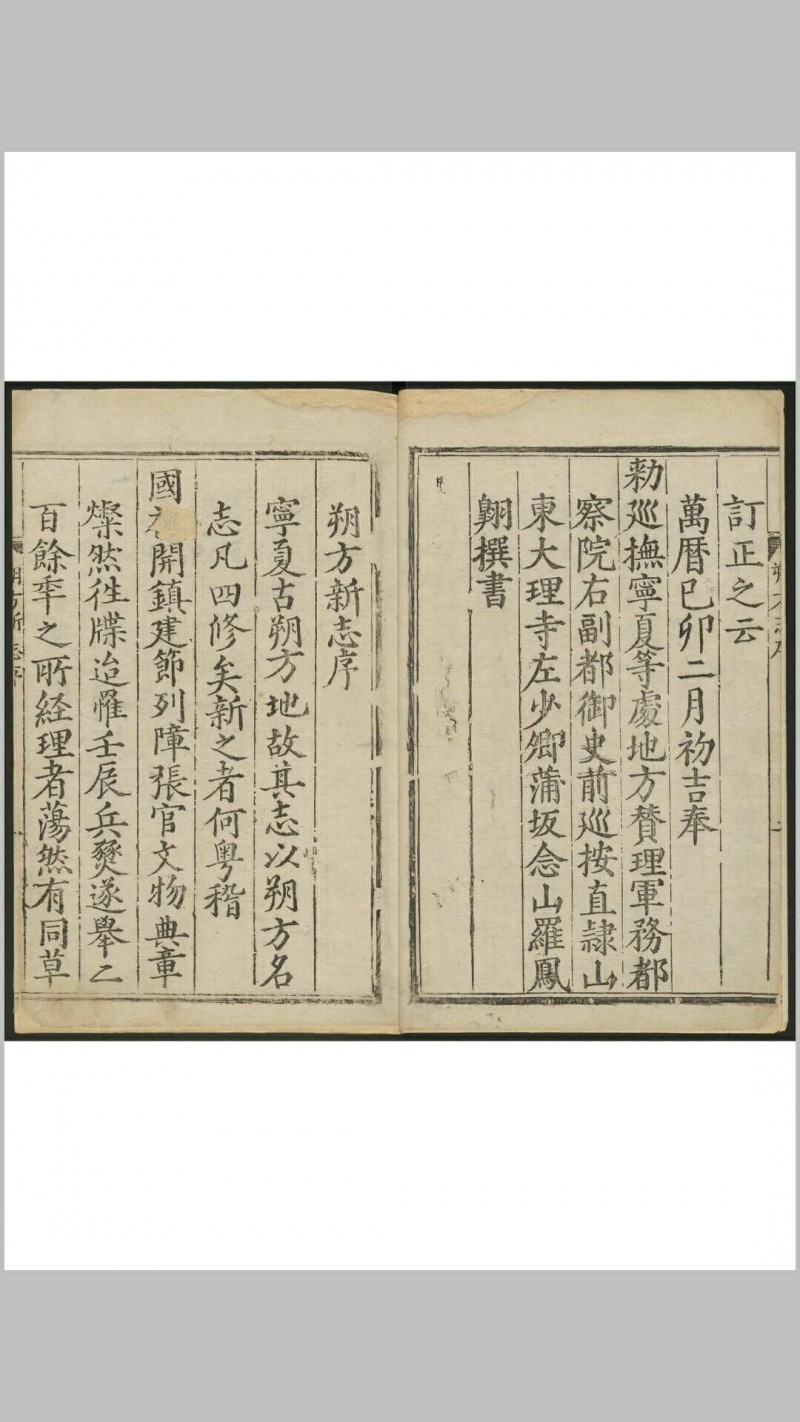 訂正之云
萬曆己卯二月初吉奉
勑巡撫寧夏等處地方贊理軍務都
察院右副都御史前巡按直隸山
東大理寺左少卿蒲坂念山羅鳳
翺撰書
朔方新志序
寧夏古朔方地故其志以朔方名
志凡四修矣新之者何粤稽
國開鎮建節列障張官文物典章
燦然徃牒迨罹壬辰兵燹遂舉二
百餘年之所經理者蕩然有同草
朔方新志序